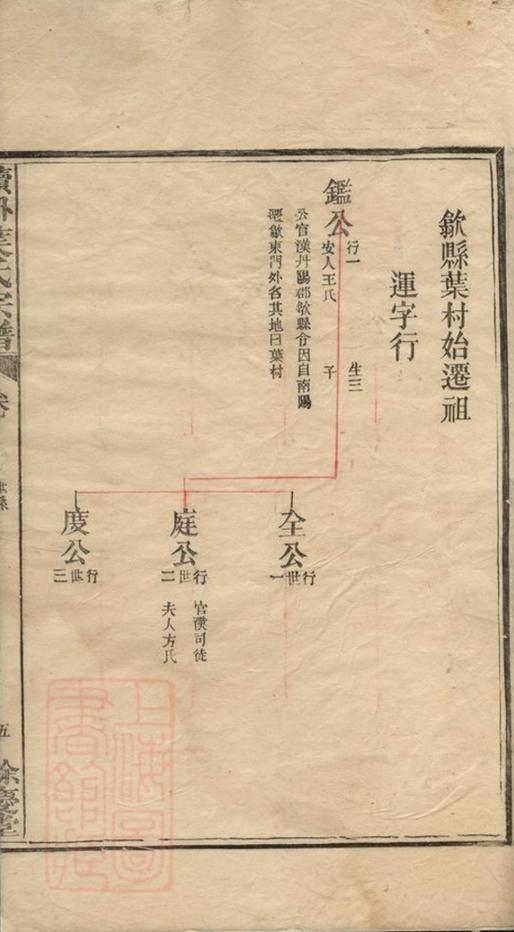 歙縣葉村始遷祖
運字行
鑑公
行一 生三
安人王氏 子
公官漢丹陽郡歙縣令因自南陽
歙東門外名其地曰葉村
全公
行世一
庭公
行世二
官漢司徒
夫人方氏
度公
行世三
葉氏宗譜
卷
世系
五
餘慶堂
上海圖
書館藏